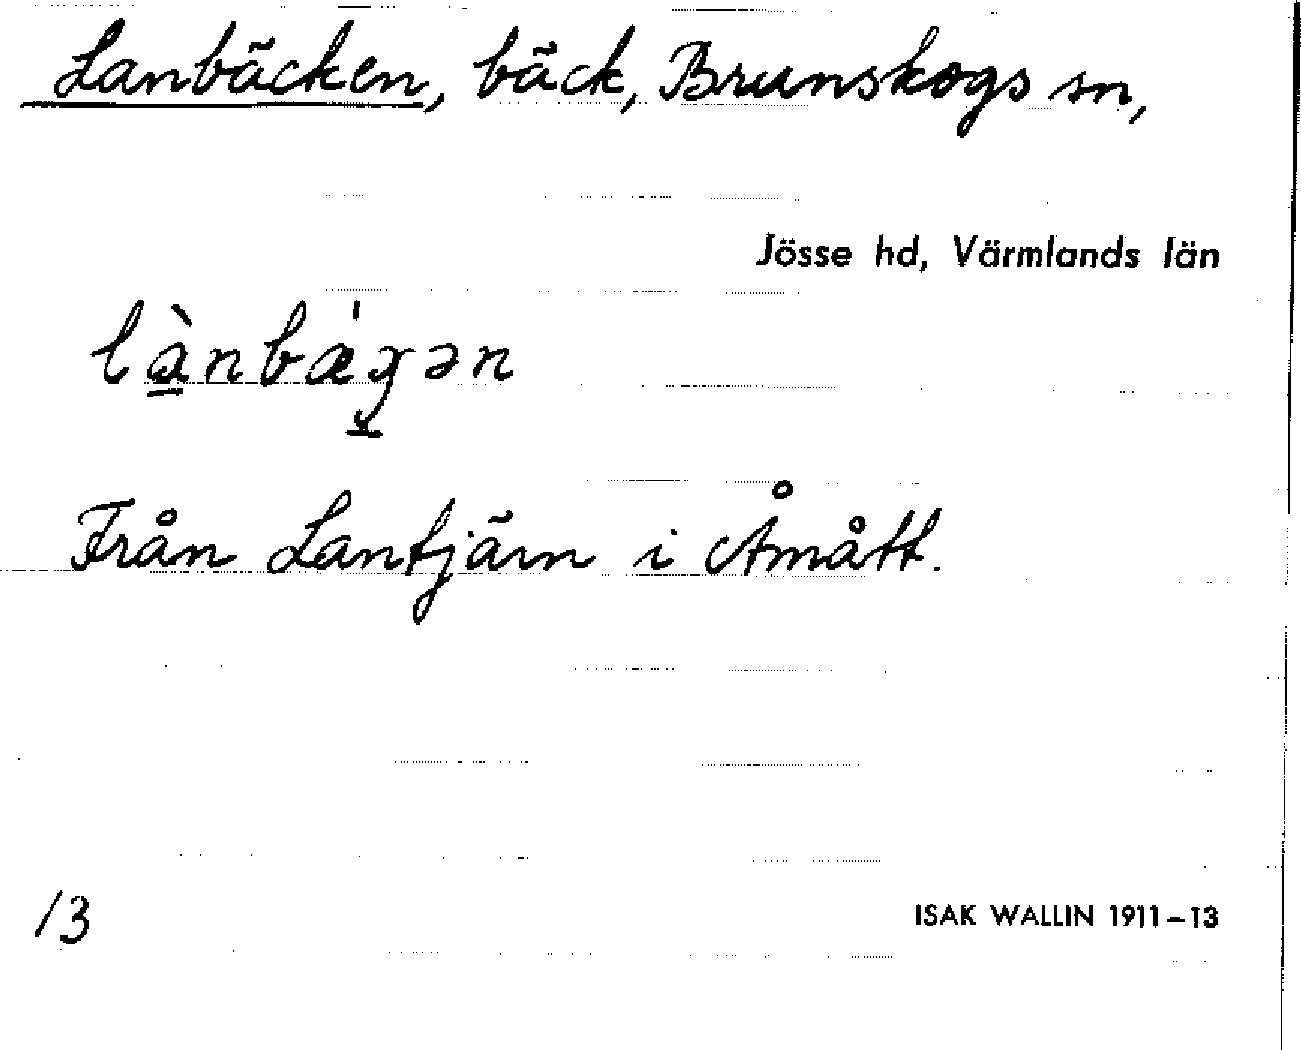 Lanbäcken, bäck, Brunskogs sn,
Jösse hd, Värmlands län
lànbæ̀χən
Från Lantjärn i Åmått.
13
ISAK WALLIN 1911–13